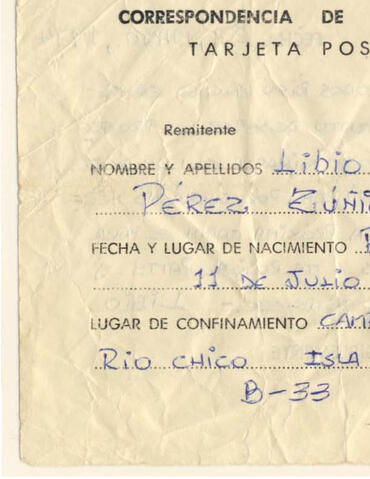 CORRESPONDENCIA DE
TARJETA POS
Remitente
NOMBRE Y APELLIDOS Libio
PÉREZ ZÚÑI
FECHA Y LUGAR DE NACIMIENTO
11 DE JULIO
LUGAR DE CONFINAMIENTO CAM
RIO CHICO ISLA
B-33